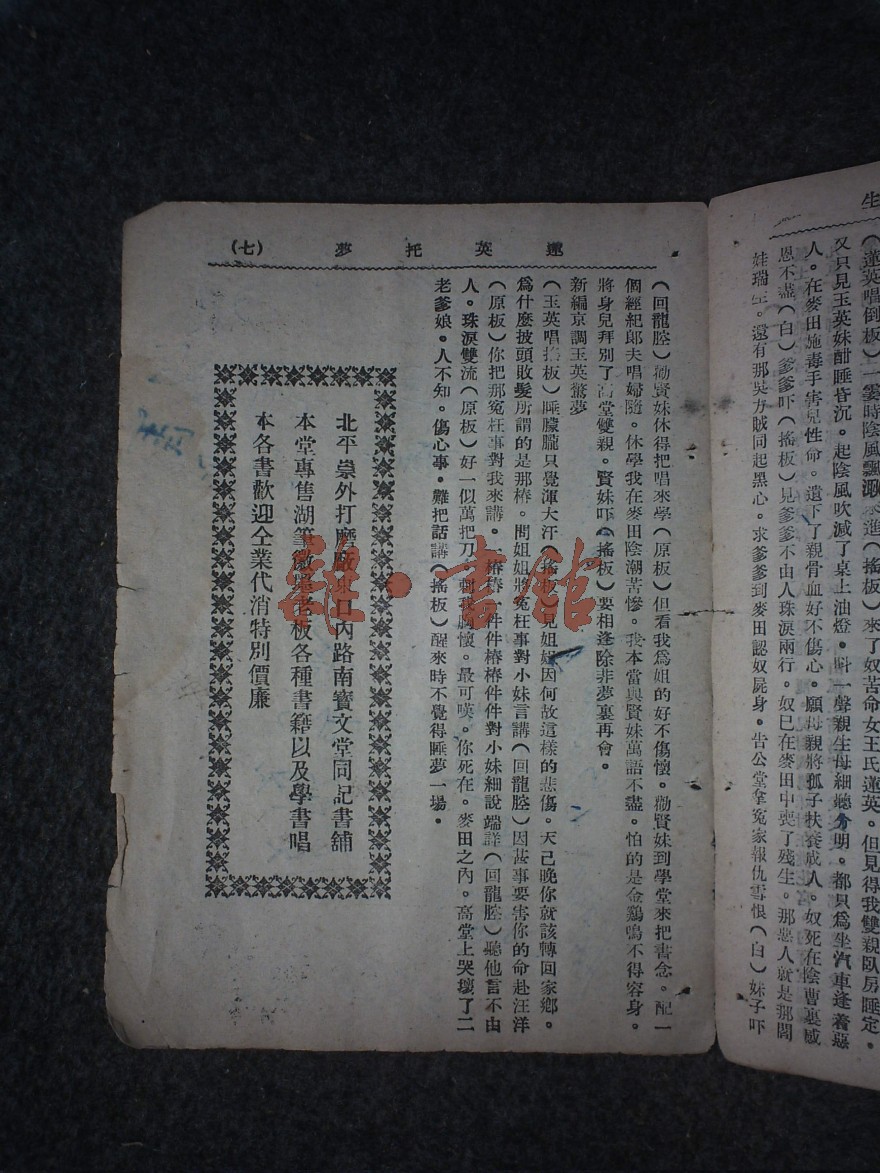 生
（蓮英唱倒板）一霎時陰風飄　　進（搖板）來了奴苦命女王氏蓮英。但見得我雙親臥房睡定。
又只見玉英妹酣睡昏沉。起陰風吹滅了桌上油燈。叫一聲親生母細聽分明。都只爲坐汽車逢着惡
人。在麥田施毒手害兒性命。遺下了親骨血好不傷心。願母親將孤子扶養成人。奴死在陰曹裏感
恩不盡（白）爹爹吓（搖板）見爹爹不由人珠淚兩行。奴已在麥田中喪了殘生。那惡人就是那閻
娃瑞生。還有那吳方賊同起黑心。求爹爹到麥田認奴屍身。告公堂拿冤家報仇雪恨（白）妹子吓
蓮英托夢　（七）
（回龍腔）勸賢妹休得把唱來學（原板）但看我爲姐的好不傷懷。勸賢妹到學堂來把書念。配一
個經紀郎夫唱婦隨。休學我在麥田陰潮苦慘。我本當與賢妹萬語不盡。怕的是金鷄鳴不得容身。
將身兒拜別了高堂雙親。賢妹吓（搖板）要相逢除非夢裏再會。
新編京調玉英驚夢
（玉英唱搖板）睡朦朧只覺渾大汗（搖板）見姐姐因何故這樣的悲傷。天已晚你就該轉回家鄉。
爲什麽披頭散髮所謂的是那樁。問姐姐將冤枉事對小妹言講（回龍腔）因甚事要害你的命赴汪洋
（原板）你把那冤枉事對我來講。一樁樁一件件樁樁件件對小妹細說端詳（回龍腔）聽他言不由
人。珠淚雙流（原板）好一似萬把刀。刺我胸懷。最可嘆。你死在。麥田之內。高堂上哭壞了二
老爹娘。人不知。傷心事。難把話講（搖板）醒來時不覺得睡夢一場。
北平崇外打磨廠東口內路南寶文堂同記書舖
本堂專售湖筆徽墨老板各種書籍以及學書唱
本各書歡迎仝業代消特別價廉
雜·書館